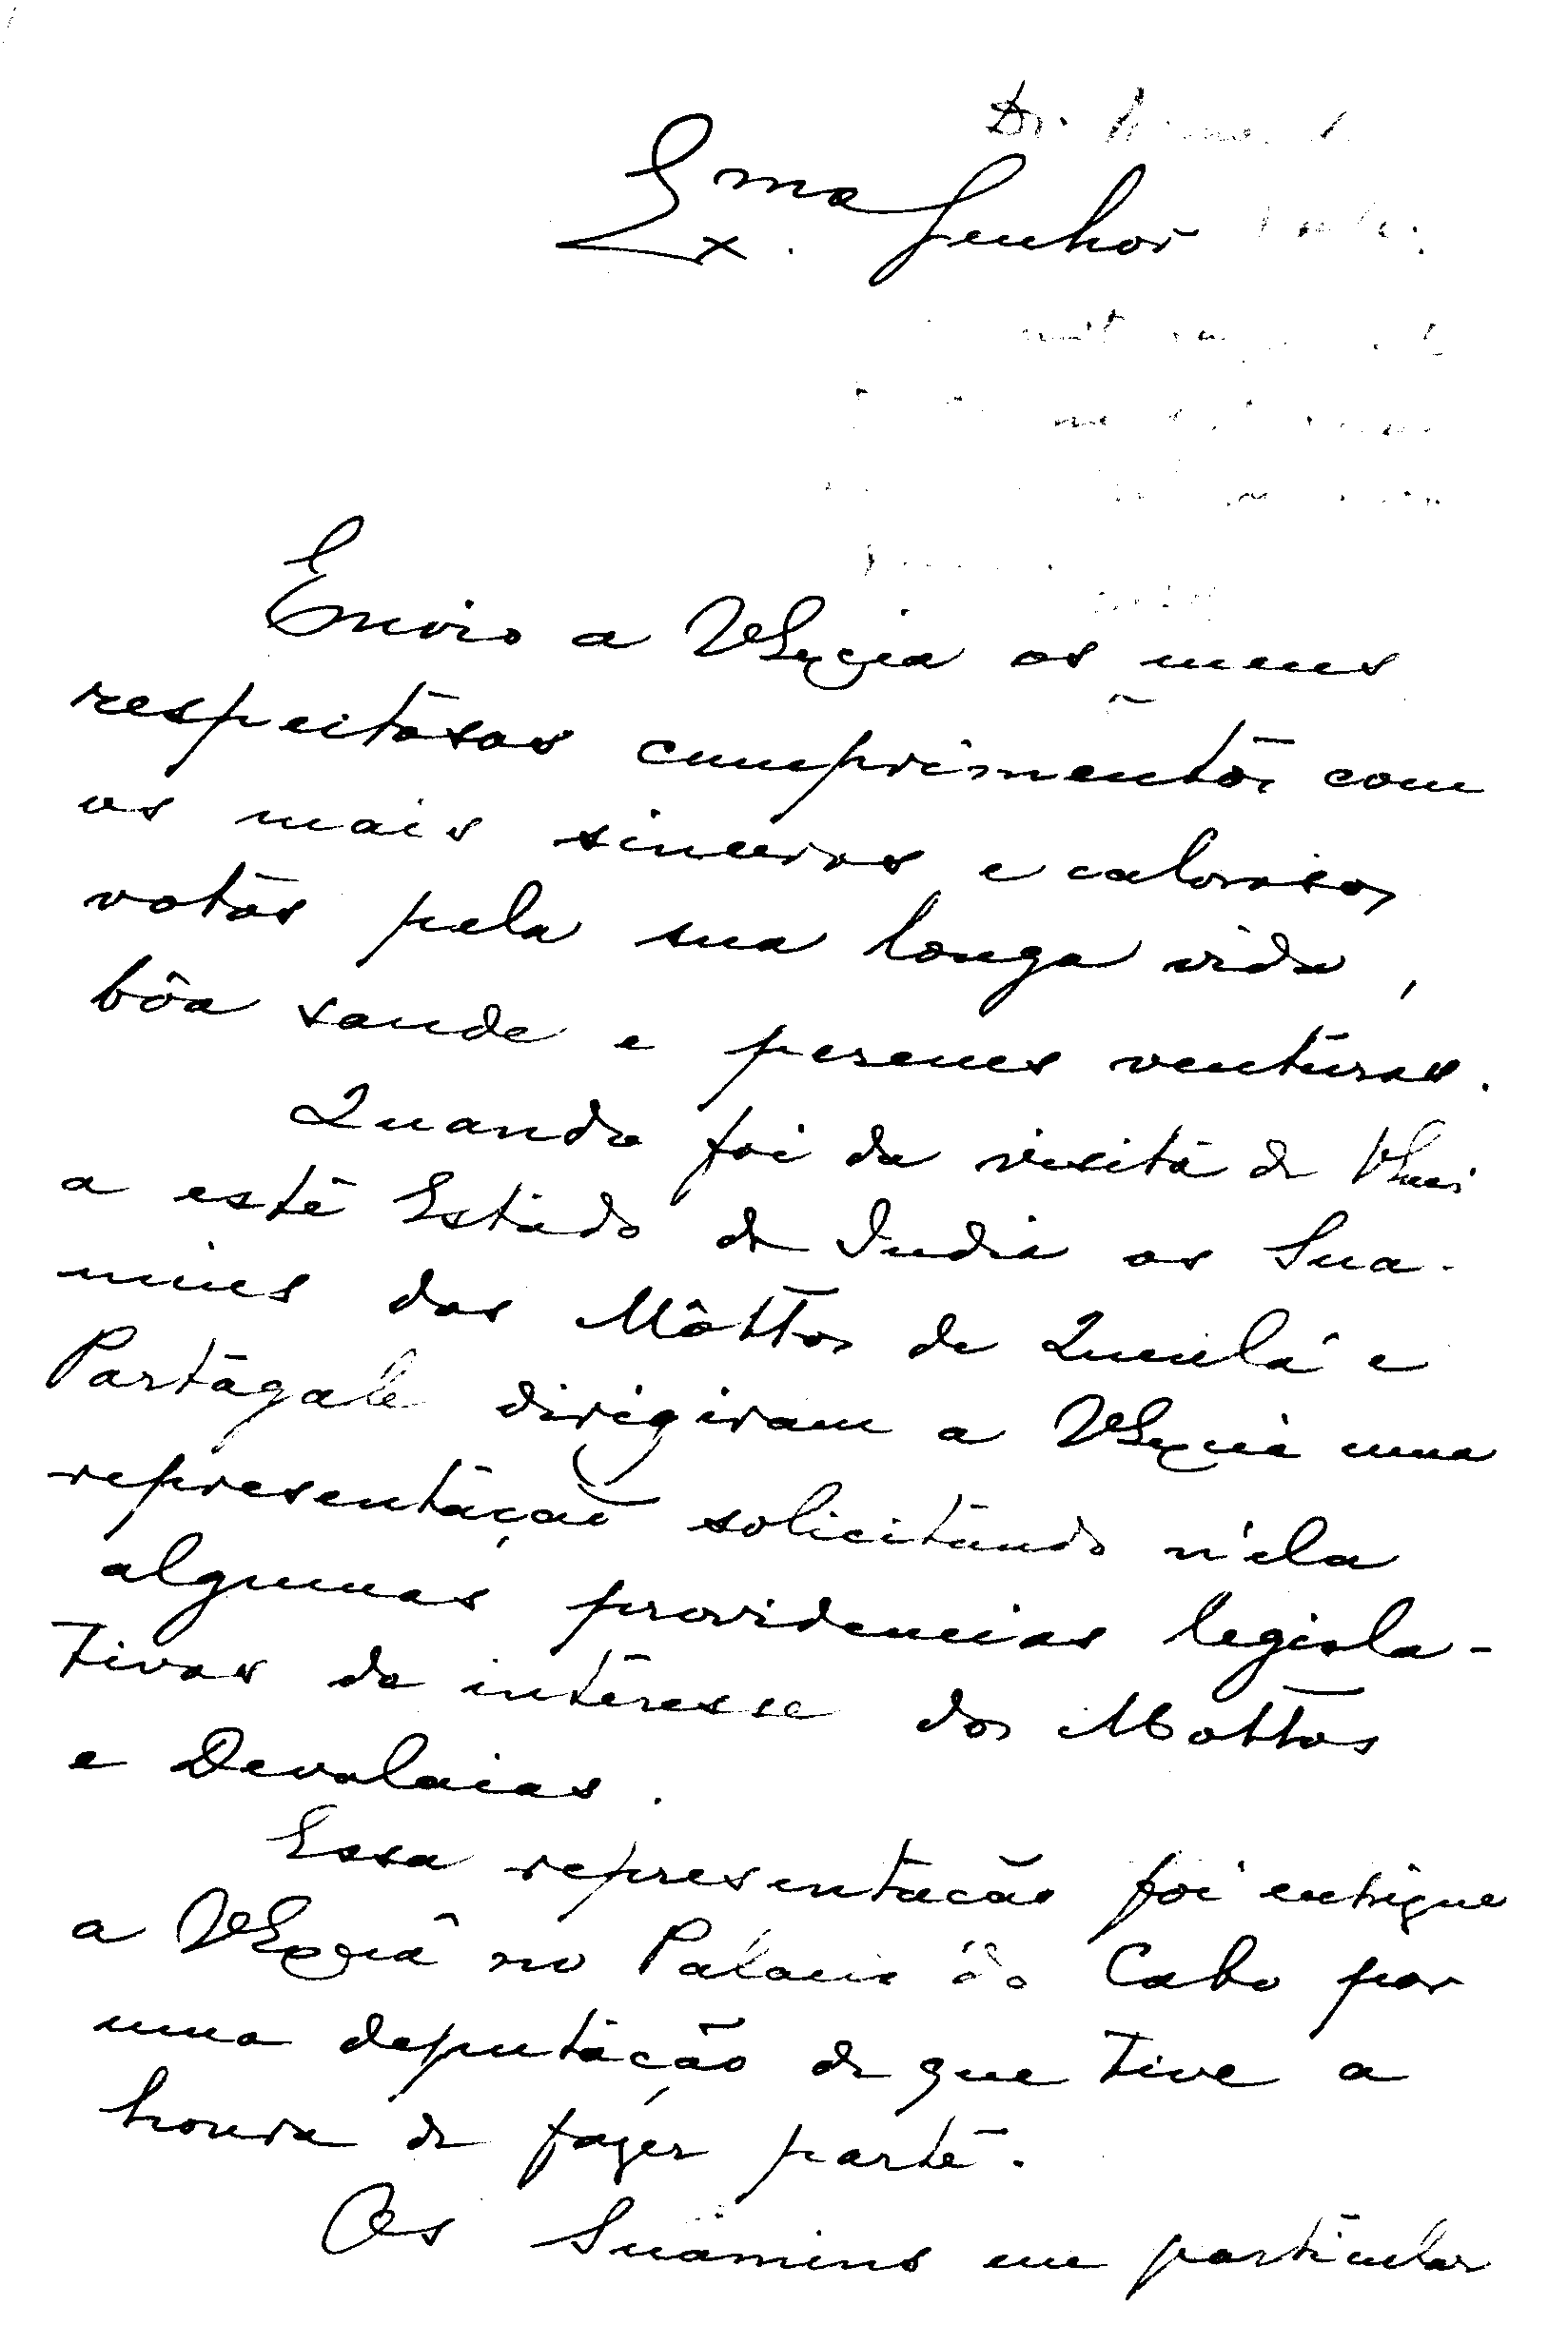 Dr.
Exmo. Senhor
Envio a VExcia os meus
respeitosos cumprimentos com
os mais sinceros e calorosos
votos pela sua longa vida,
bôa saude e perenes venturas.
Quando foi da visita de VExcia
a este Estado da India os Sua-
mines dos Môttos de Queulá e
Partagale dirigiram a VExcia uma
representação solicitando n'ela
algumas providencias legisla-
tivas do interesse dos Mottos
e Devalaias.
Essa representação foi entregue
a VExcia no Palacio do Cabo por
uma deputação de que tive a
honra de fazer parte.
Os Suamins em particular